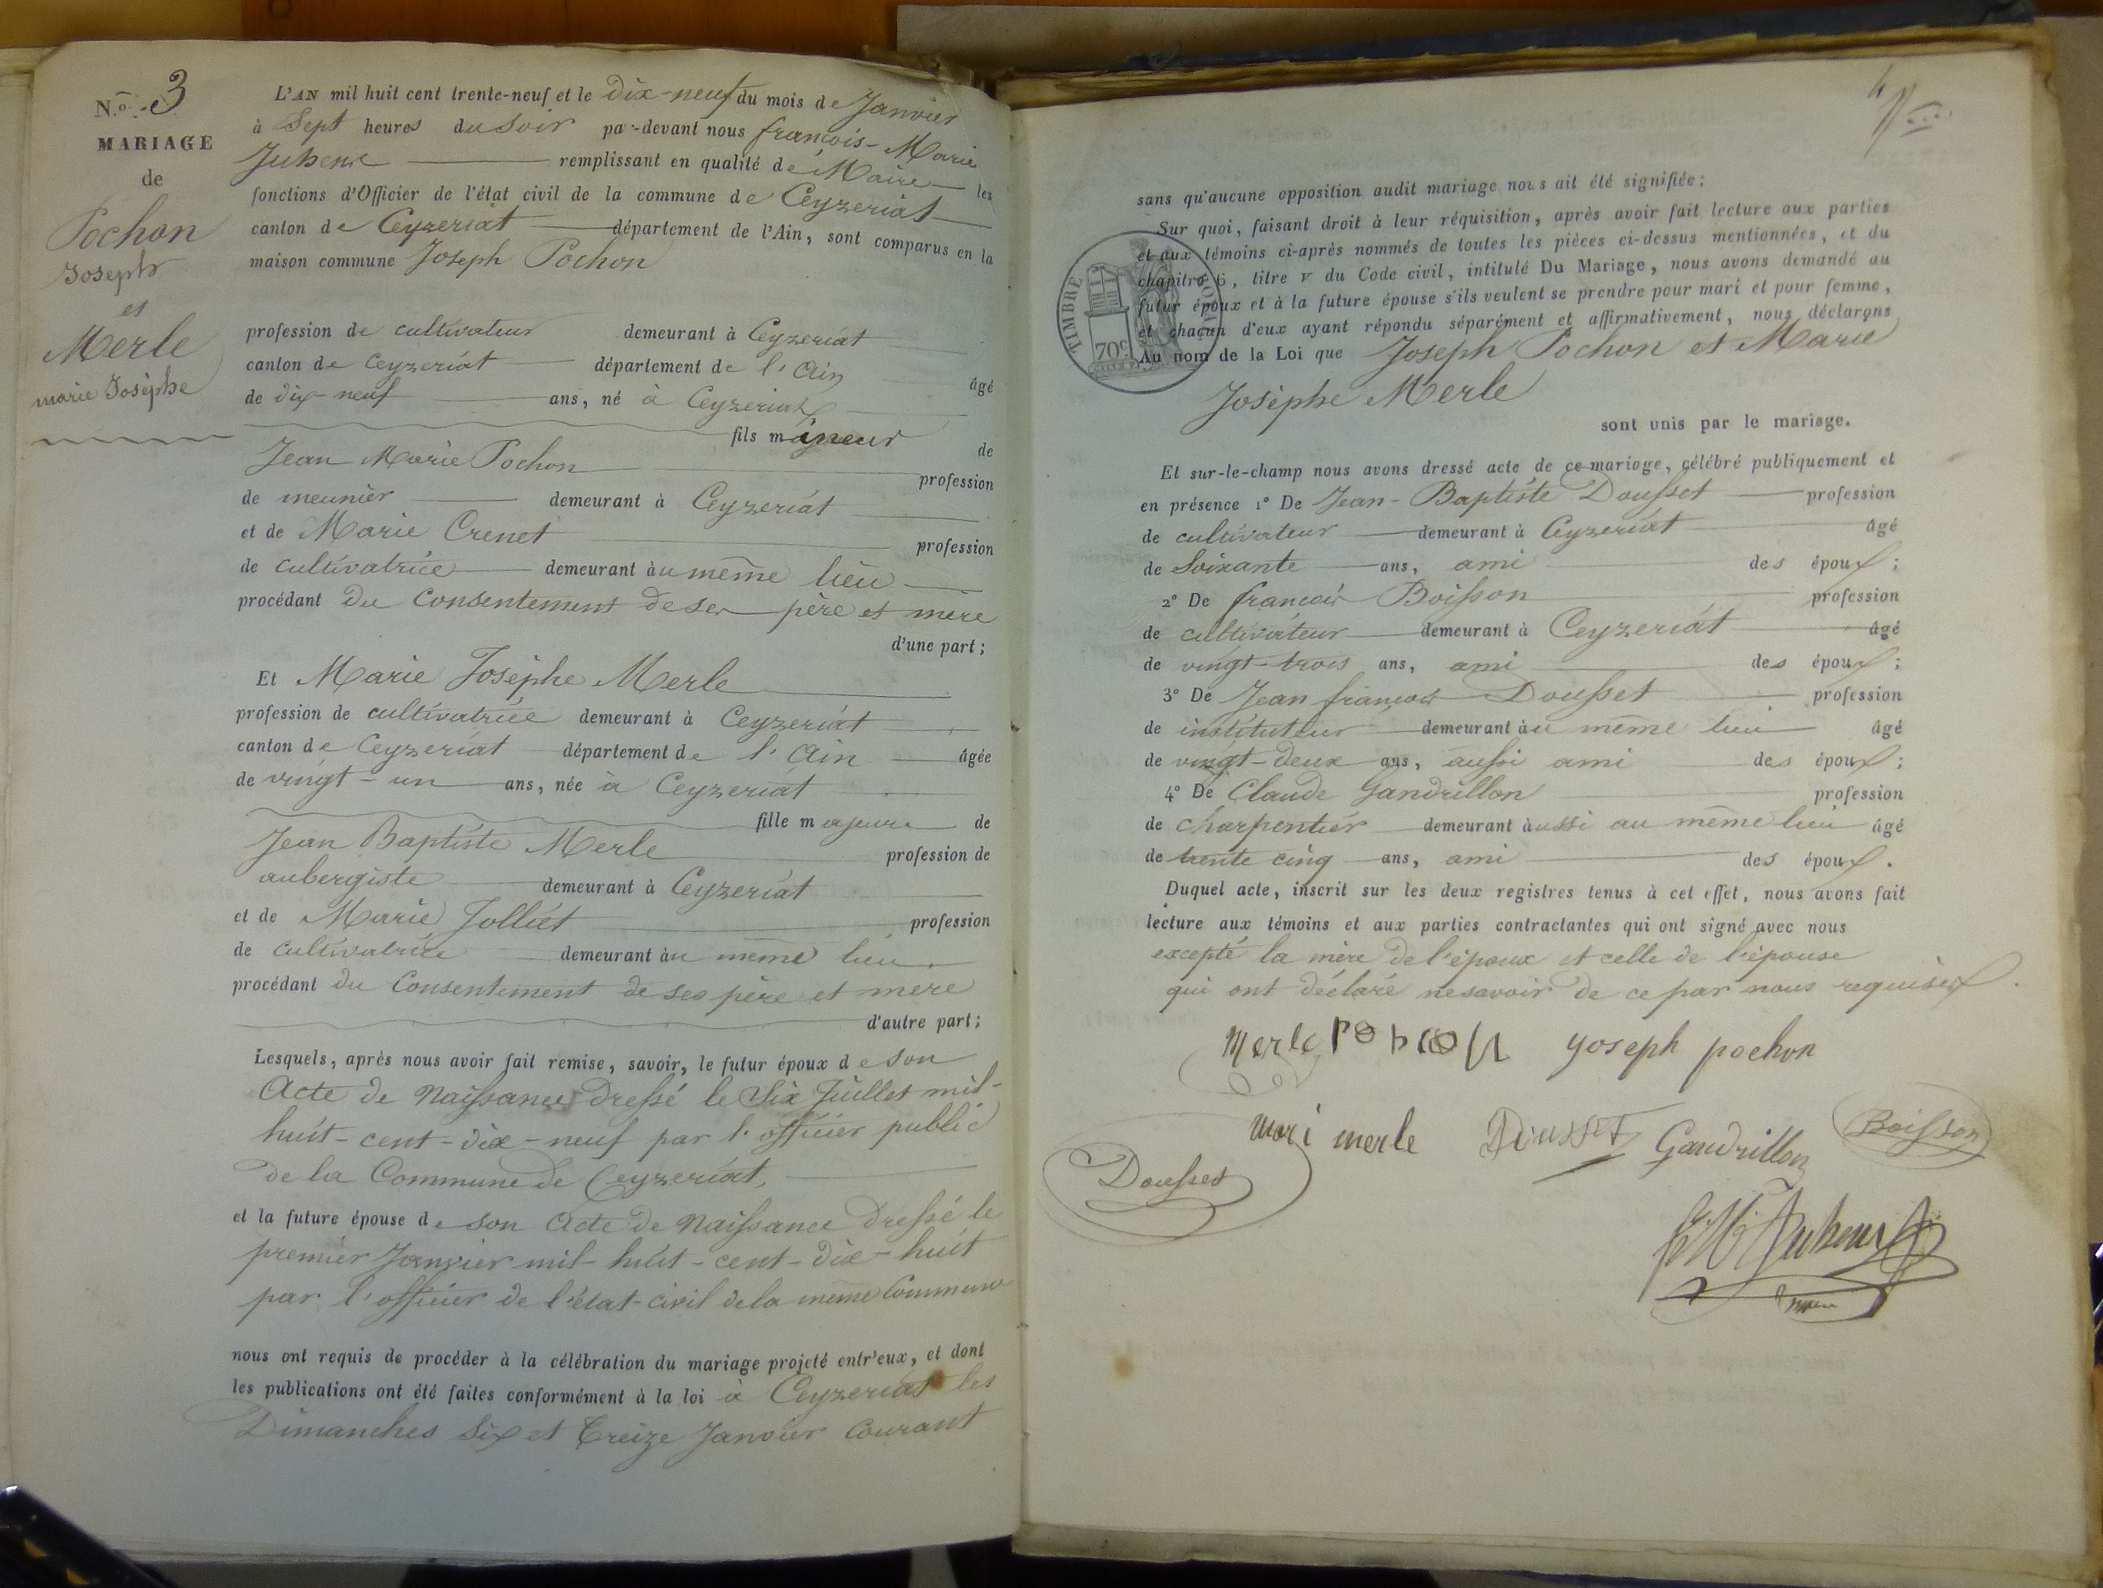 N.º 3
MARIAGE
de
Pochon
Joseph
et
Merle
marie Josèphe
L'AN mil huit cent trente-neuf et le dix-neuf du mois de Janvier
à Sept heures du soir par-devant nous françois-Marie
Juhene remplissant en qualité de Maire les
fonctions d'Officier de l'état civil de la commune de Ceyzeriat
canton de Ceyzeriat département de l'Ain, sont comparus en la
maison commune Joseph Pochon
profession de cultivateur demeurant à Ceyzeriat
canton de Ceyzeriat département de l'Ain âgé
de dix-neuf ans, né à Ceyzeriat
fils mineur de
Jean Marie Pochon profession
de meunier demeurant à Ceyzeriat
et de Marie Crenet profession
de cultivatrice demeurant au même lieu
procédant du consentement de ses père et mère
d'une part;
Et Marie Josèphe Merle
profession de cultivatrice demeurant à Ceyzeriat
canton de Ceyzeriat département de l'Ain âgée
de vingt-un ans, née à Ceyzeriat
fille majeure de
Jean Baptiste Merle profession de
aubergiste demeurant à Ceyzeriat
et de Marie Jolliet profession
de cultivatrice demeurant au même lieu
procédant du Consentement de ses père et mere
d'autre part;
Lesquels, après nous avoir fait remise, savoir, le futur époux de son
Acte de Naissance Dressé le Six Juillet mil-
huit-cent-dix-neuf par l'officier public
de la Commune de Ceyzeriat,
et la future épouse de son Acte de Naissance Dressé le
premier Janvier mil-huit-cent-dix-huit
par l'officier de l'état-civil de la même Commune
nous ont requis de procéder à la célébration du mariage projeté entr'eux, et dont
les publications ont été faites conformément à la loi à Ceyzeriat les
Dimanches Six et Treize Janvier courant
4
sans qu'aucune opposition audit mariage nous ait été signifiée;
Sur quoi, faisant droit à leur réquisition, après avoir fait lecture aux parties
et aux témoins ci-après nommés de toutes les pièces ci-dessus mentionnées, et du
chapitre 6, titre V du Code civil, intitulé Du Mariage, nous avons demandé au
futur époux et à la future épouse s'ils veulent se prendre pour mari et pour femme,
et chacun d'eux ayant répondu séparément et affirmativement, nous déclarons
Au nom de la Loi que Joseph Pochon et Marie
Josèphe Merle
sont unis par le mariage.
TIMBRE ROYAL
70c
Et sur-le-champ nous avons dressé acte de ce mariage, célébré publiquement et
en présence 1º De Jean-Baptiste Dousset profession
de cultivateur demeurant à Ceyzeriat âgé
de Soixante ans, ami des époux;
2º De françois Boisson profession
de cultivateur demeurant à Ceyzeriat âgé
de vingt-trois ans, ami des époux;
3º De Jean françois Dousset profession
de instituteur demeurant au même lieu âgé
de vingt-deux ans, aussi ami des époux;
4º De Claude Gandrillon profession
de charpentier demeurant aussi au même lieu âgé
de trente cinq ans, ami des époux.
Duquel acte, inscrit sur les deux registres tenus à cet effet, nous avons fait
lecture aux témoins et aux parties contractantes qui ont signé avec nous
excepté la mère de l'époux et celle de l'épouse
qui ont déclaré ne savoir de ce par nous requises.
Merle pochon joseph pochon
mari merle Dousset Gandrillon Boisson
Dousset